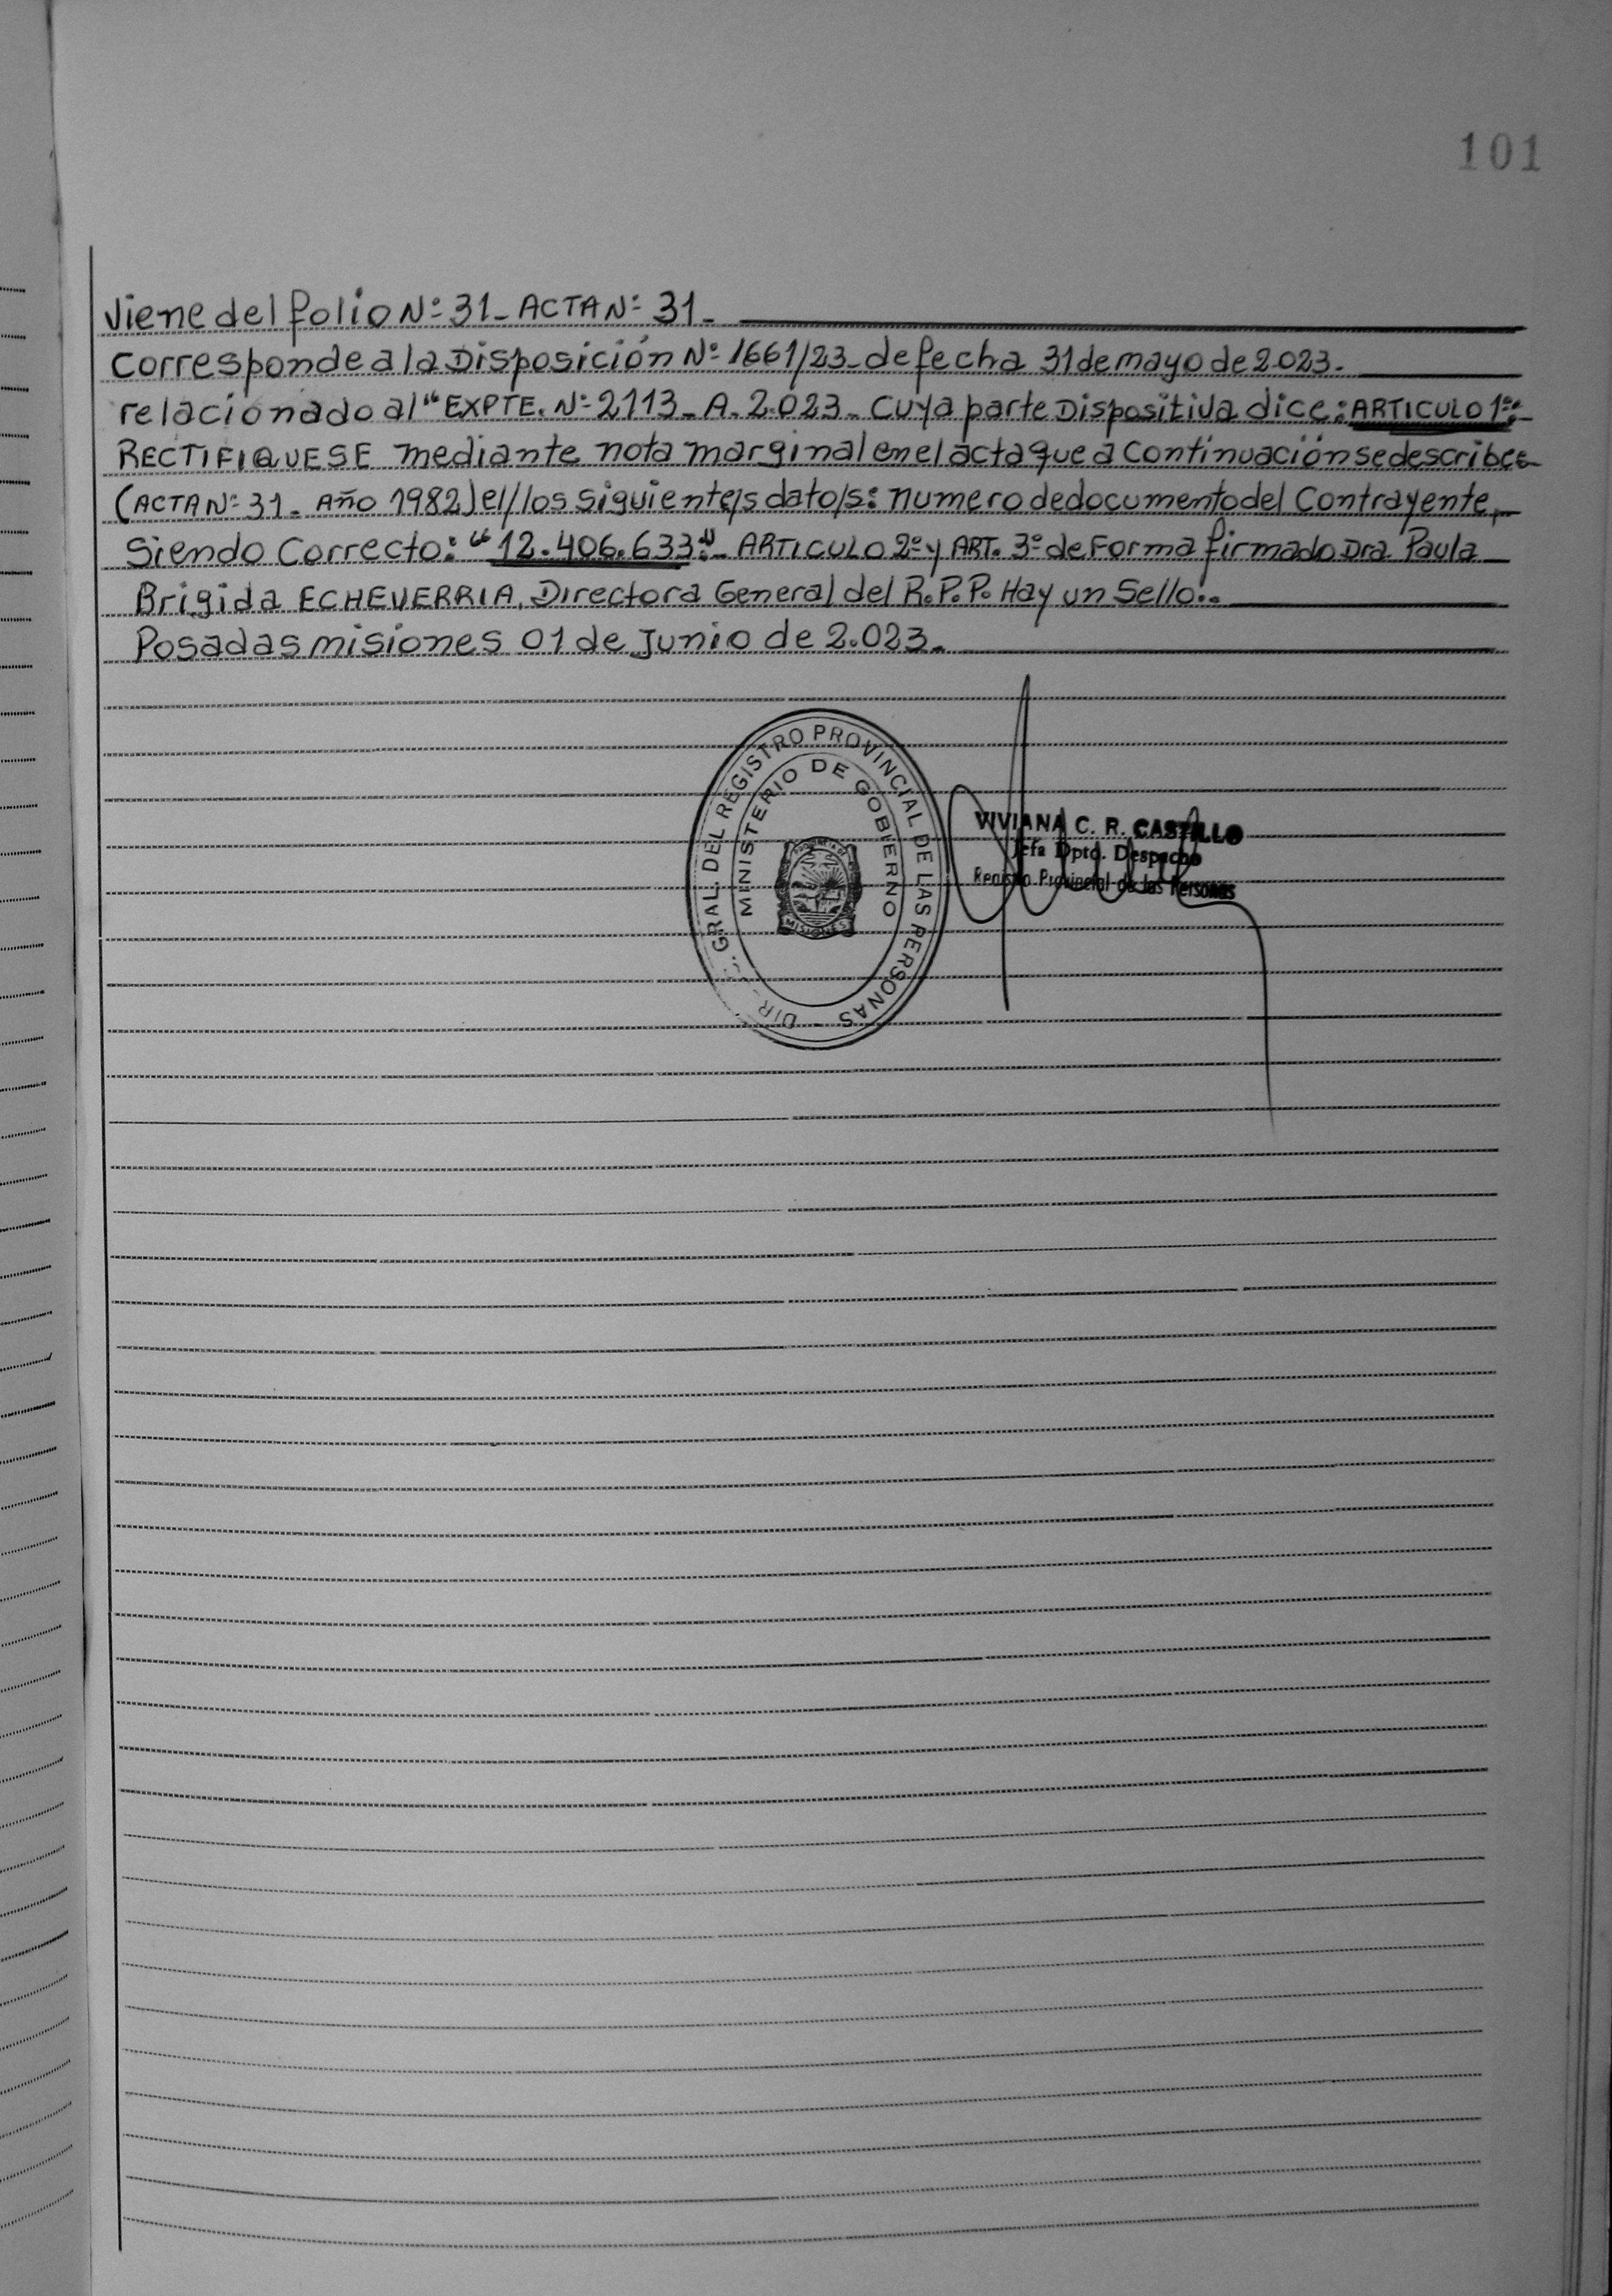 101
Viene del folio Nº 31_ ACTA Nº 31_
Corresponde a la Disposición Nº 1661/23_ de fecha 31 de mayo de 2.023._
relacionado al "EXPTE. Nº 2113_ A. 2.023_ Cuya parte Dispositiva dice: ARTICULO 1º:_
RECTIFIQUESE mediante nota marginal en el acta que a Continuación se describe:_
(ACTA Nº 31_ Año 1982) el/los siguiente/s dato/s: numero de documento del Contrayente,_
Siendo Correcto: "12.406.633"._ ARTICULO 2º y ART. 3º de Forma firmado Dra Paula
Brigida ECHEVERRIA, Directora General del R.P.P. Hay un Sello:._
Posadas misiones 01 de Junio de 2.023._
DIR. GRAL. DEL REGISTRO PROVINCIAL DE LAS PERSONAS -
MINISTERIO DE GOBIERNO
PROVINCIA DE
MISIONES
VIVIANA C. R. CASTILLO
Jefa Dpto. Despacho
Registro Provincial de las Personas